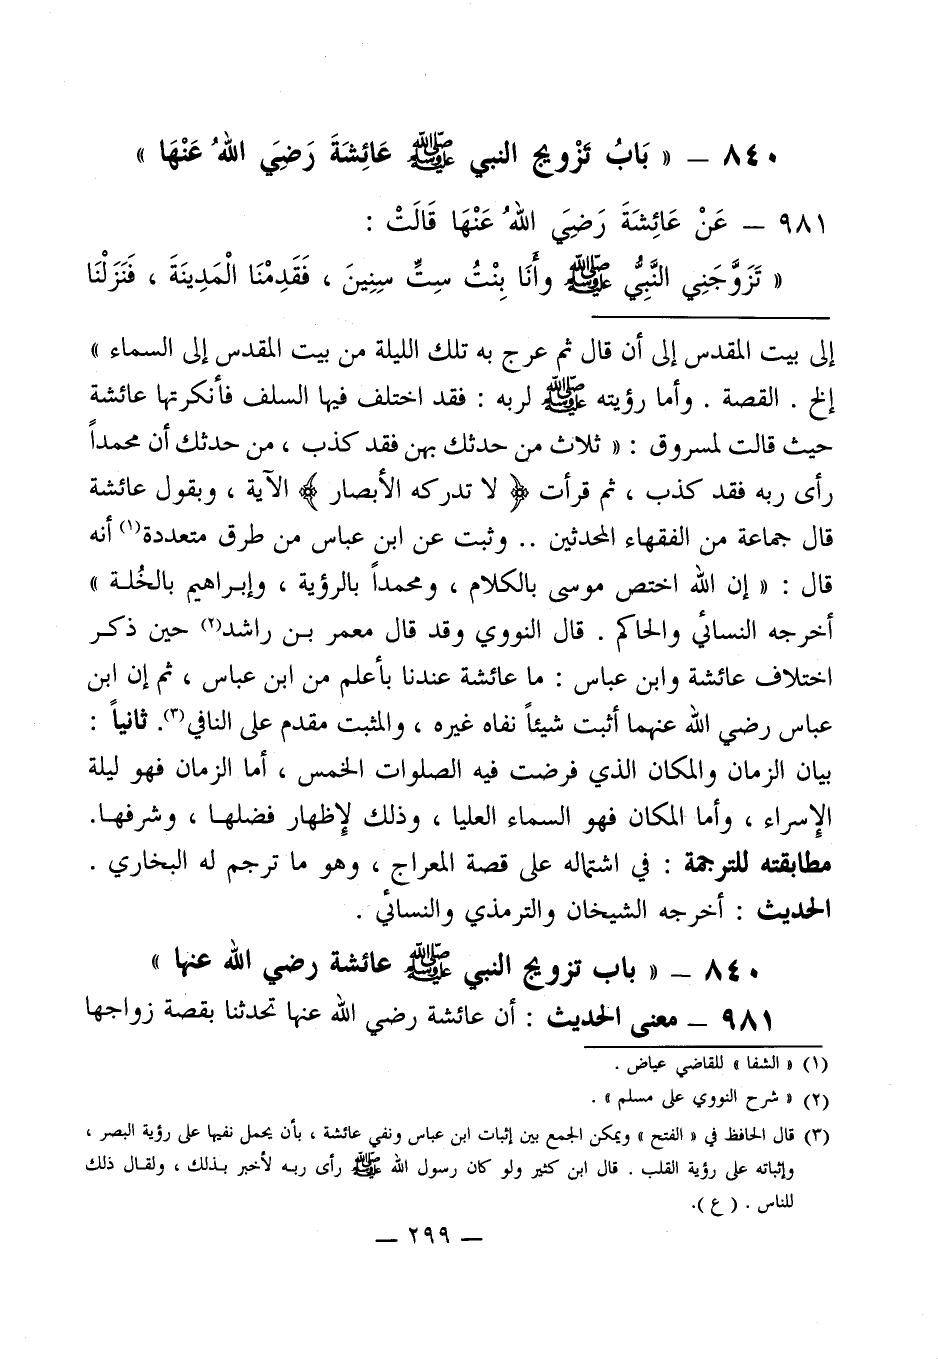 ٨٤٠ – « بَابُ تَزْوِيجِ النبي ﷺ عَائِشَةَ رَضِيَ اللهُ عَنْهَا »
٩٨١ – عَنْ عَائِشَةَ رَضِيَ اللهُ عَنْهَا قَالَتْ :
« تَزَوَّجَنِي النَّبِيُّ ﷺ وأَنَا بِنْتُ سِتٍّ سِنِينَ ، فَقَدِمْنَا الْمَدِينَةَ ، فَنَزَلْنَا
إلى بيت المقدس إلى أن قال ثم عرج به تلك الليلة من بيت المقدس إلى السماء »
إلخ . القصة . وأما رؤيته ﷺ لربه : فقد اختلف فيها السلف فأنكرتها عائشة
حيث قالت لمسروق : « ثلاث من حدثك بهن فقد كذب ، من حدثك أن محمداً
رأى ربه فقد كذب ، ثم قرأت ﴿ لا تدركه الأبصار ﴾ الآية ، وبقول عائشة
قال جماعة من الفقهاء المحدثين .. وثبت عن ابن عباس من طرق متعددة(١) أنه
قال : « إن الله اختص موسى بالكلام ، ومحمداً بالرؤية ، وإبراهيم بالخُلة »
أخرجه النسائي والحاكم . قال النووي وقد قال معمر بن راشد(٢) حين ذكر
اختلاف عائشة وابن عباس : ما عائشة عندنا بأعلم من ابن عباس ، ثم إن ابن
عباس رضي الله عنهما أثبت شيئاً نفاه غيره ، والمثبت مقدم على النافي(٣). ثانياً :
بيان الزمان والمكان الذي فرضت فيه الصلوات الخمس ، أما الزمان فهو ليلة
الإسراء ، وأما المكان فهو السماء العليا ، وذلك لإظهار فضلها ، وشرفها.
مطابقته للترجمة : في اشتماله على قصة المعراج ، وهو ما ترجم له البخاري .
الحديث : أخرجه الشيخان والترمذي والنسائي .
٨٤٠ – « باب تزويج النبي ﷺ عائشة رضي الله عنها »
٩٨١ – معنى الحديث : أن عائشة رضي الله عنها تحدثنا بقصة زواجها
(١) « الشفا » للقاضي عياض .
(٢) « شرح النووي على مسلم » .
(٣) قال الحافظ في « الفتح » ويمكن الجمع بين إثبات ابن عباس ونفي عائشة ، بأن يحمل نفيها على رؤية البصر ،
وإثباته على رؤية القلب . قال ابن كثير ولو كان رسول الله ﷺ رأى ربه لأخبر بذلك ، ولقال ذلك
للناس . ( ع ).
– ٢٩٩ –